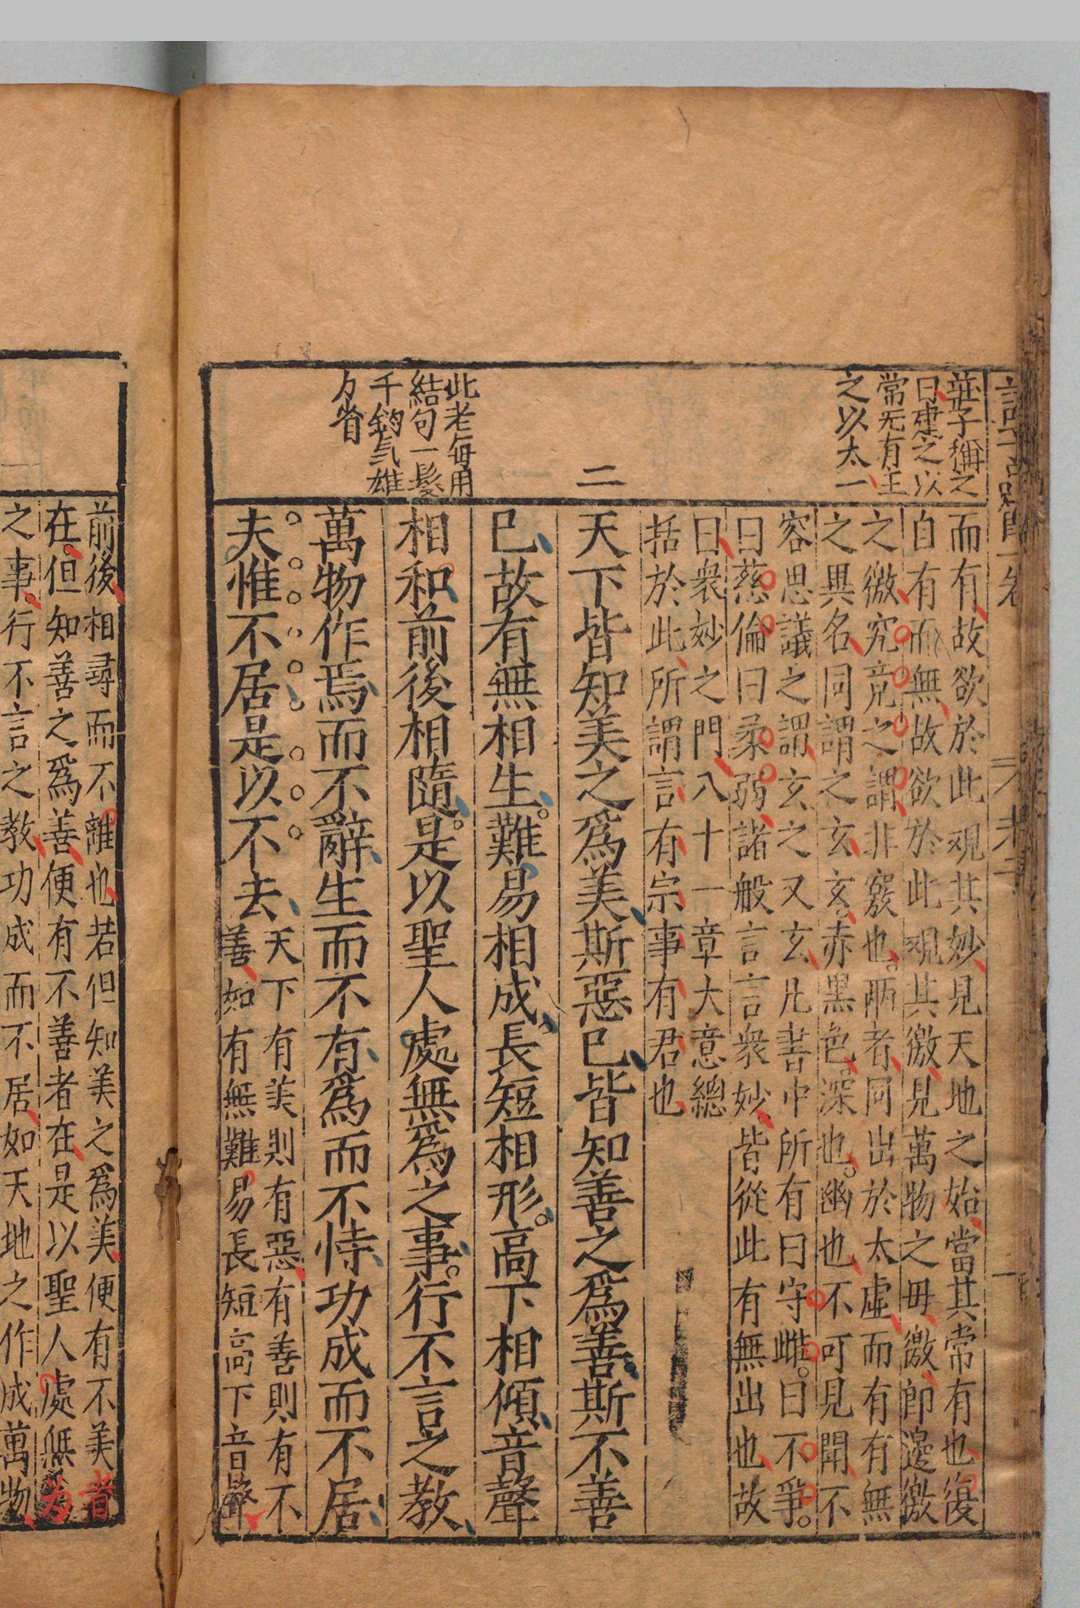 莊子稱之
曰建之以
常无有主
之以太一
二
此老每用
結句一髮
千鈞氣雄
力省
而有故欲於此観其妙見天地之始當其常有也復
自有而無故欲於此観其徼見萬物之毋徼即邊徼
之微究竟之謂非竅也兩者同出於太虛而有有無
之異名同謂之玄玄赤黑色深也幽也不可見聞不
容思議之謂玄之又玄凡書中所有曰守雌曰不爭
曰慈儉曰柔弱諸般言言衆妙皆從此有無出也故
曰衆妙之門八十一章大意總
括於此所謂言有宗事有君也
天下皆知美之爲美斯惡已皆知善之爲善斯不善
已故有無相生難易相成長短相形高下相傾音聲
相和前後相隨是以聖人處無爲之事行不言之教
萬物作焉而不辭生而不有爲而不恃功成而不居
夫惟不居是以不去
天下有美則有惡有善則有不
善如有無難易長短高下音聲
前後相尋而不離也若但知美之爲美便有不美者
在但知善之爲善便有不善者在是以聖人處無为
之事行不言之教功成而不居如天地之作成萬物